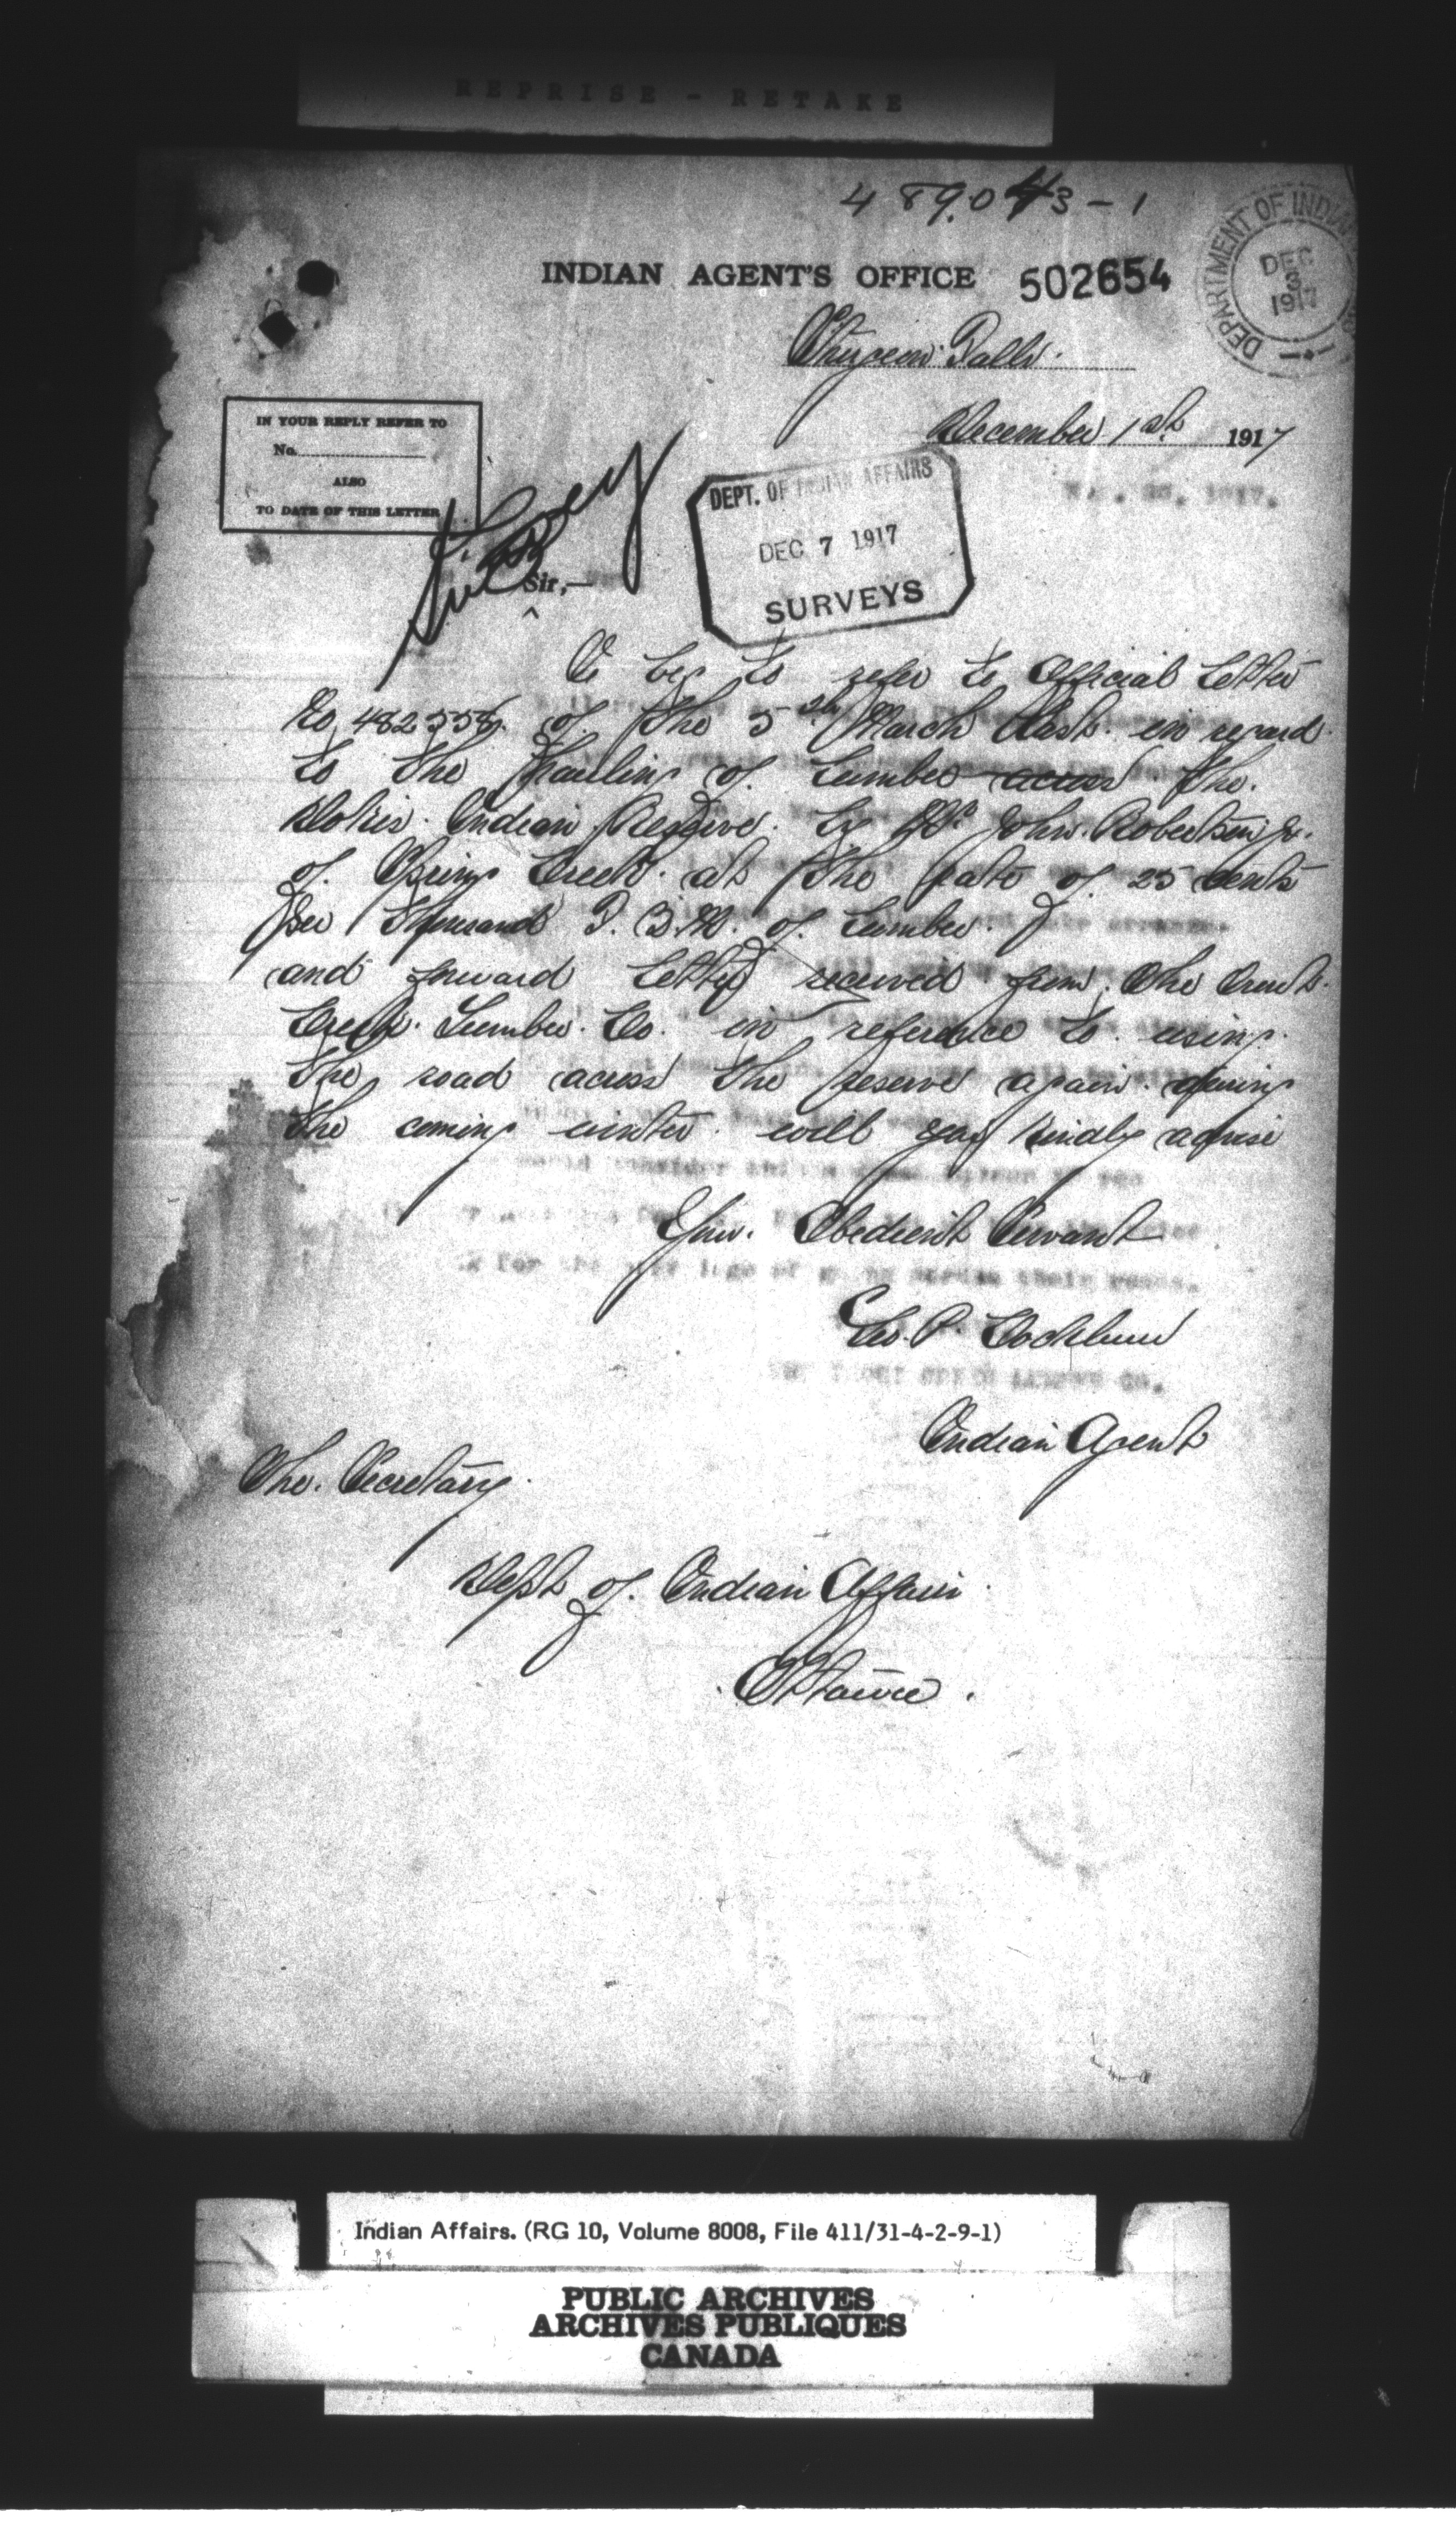 REPRISE - RETAKE
489.043-1
INDIAN AGENT'S OFFICE 502654
DEPARTMENT OF INDIAN
DEC 3 1917
Sturgeon Falls.
December 1st 1917
IN YOUR REPLY REFER TO
No.
ALSO
TO DATE OF THIS LETTER
DEPT. OF INDIAN AFFAIRS
DEC 7 1917
SURVEYS
Sir,—
I beg to refer to Official Letter
No 482558. of the 5th March last. in regard
to the Hauling of Lumber across the.
Dokis. Indian Reserve. by Mr John. Robertson Jr.
of. Spring Creek. at the rate of 25 cents
per thousand F. B. M. of. Lumber.
and forward letter received from. the Trout.
Creek. Lumber. Co. in reference to. using.
the road across the reserve again. during
the coming winter. will you kindly advise
Your. Obedient Servant
Geo. P. Cockburn
Indian Agent
The. Secretary.
Dept of. Indian Affairs
Ottawa.
Indian Affairs. (RG 10, Volume 8008, File 411/31-4-2-9-1)
PUBLIC ARCHIVES
ARCHIVES PUBLIQUES
CANADA